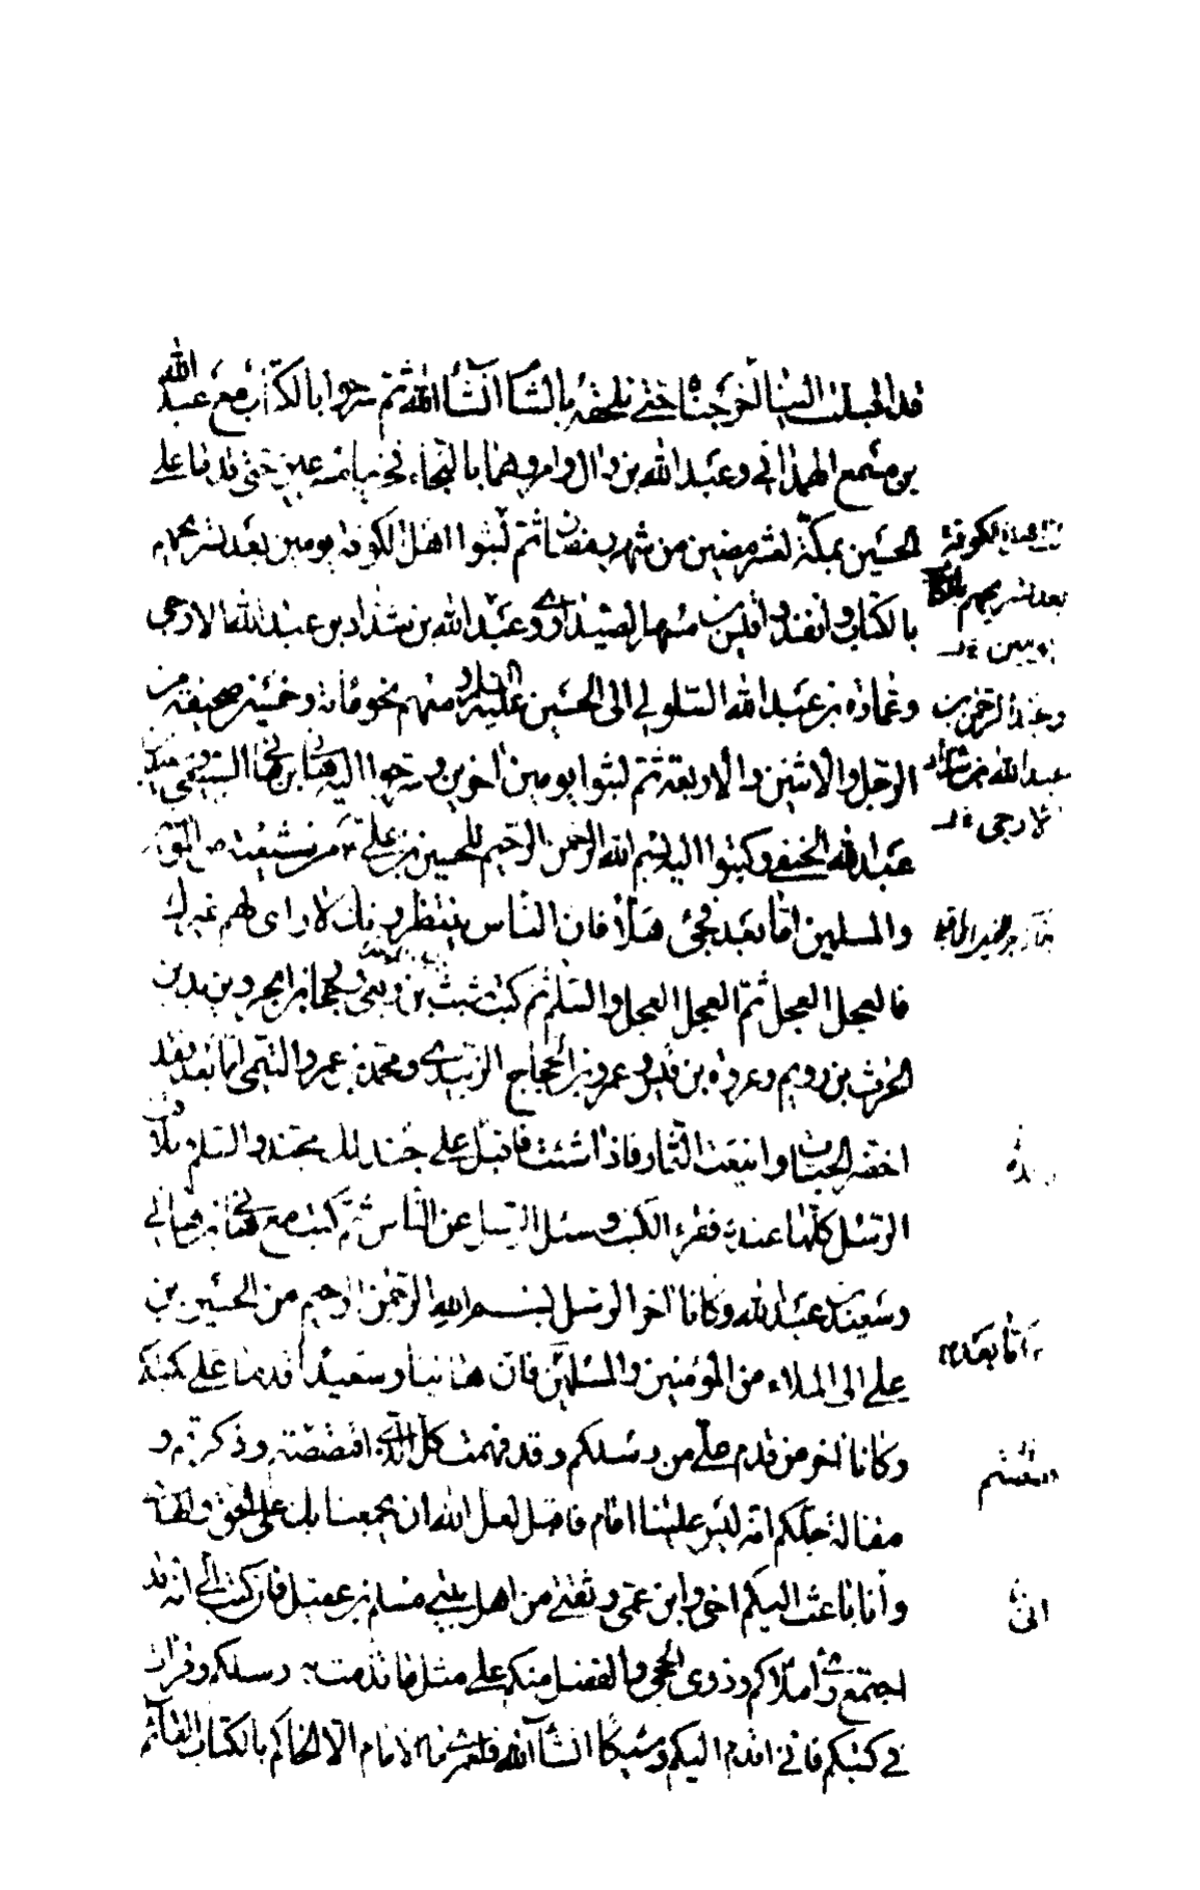 قد اقبلت الينا اخرجناه حتى نلحقه بالشام انشاء الله ثم سرحوا بالكتاب مع عبد الله
بن مسمع الهمداني وعبد الله بن وال وامروهما بالنجاء فخرجا مسرعين حتى قدما على
الحسين بمكة لعشر مضين من شهر رمضان ثم لبثوا اهل الكوفة يومين بعد تسريحهم
بالكتاب وانفذوا قيس بن مسهر الصيداوي وعبد الله بن شداد بن عبد الله الارحبي
وعمارة بن عبد الله السلولي الى الحسين عليه السلام ومعهم نحو مائة وخمسين صحيفة من
الرجل والاثنين والاربعة ثم لبثوا يومين اخرين وسرحوا اليه هاني بن هاني السبيعي وسعيد بن
عبد الله الحنفي وكتبوا اليه بسم الله الرحمن الرحيم للحسين بن علي ع من شيعته من المؤمنين
والمسلمين اما بعد فحي هلا فان الناس ينتظرونك لا راى لهم غيرك
فالعجل العجل ثم العجل العجل والسلم ثم كتب شبث بن ربعي وحجار بن ابجر ويزيد بن
الحرث بن رويم وعروة بن قيس وعمرو بن الحجاج الزبيدي ومحمد بن عمرو التيمي اما بعد فقد
اخضر الجناب واينعت الثمار فاذا شئت فاقبل على جند لك مجند والسلم وتلاقت
الرسل كلها عنده فقرء الكتب وسئل الرسل عن الناس ثم كتب مع هاني بن هاني
وسعيد بن عبد الله وكانا اخر الرسل بسم الله الرحمن الرحيم من الحسين بن
علي الى الملاء من المؤمنين والمسلمين فان هانيا وسعيدا قدما على بكتبكم
وكانا اخر من قدم على من رسلكم وقد فهمت كل الذي اقتصصتم وذكرتم و
مقالة جلكم انه ليس علينا امام فاقبل لعل الله ان يجمعنا بك على الحق والهدى
وانا باعث اليكم اخي وابن عمي وثقتي من اهل بيتي مسلم بن عقيل فان كتب الي انه قد
اجتمع راى ملاكم وذوى الحجى والفضل منكم على مثل ما قدمت به رسلكم وقرات
في كتبكم فاني اقدم اليكم وشيكا انشاء الله فلعمري ما الامام الا الحاكم بالكتاب القائم
اهل الكوفة
بعد تسريحهم
يومين
وعبد الرحمن بن
عبد الله بن شداد
الارحبي
اما بعد
انى